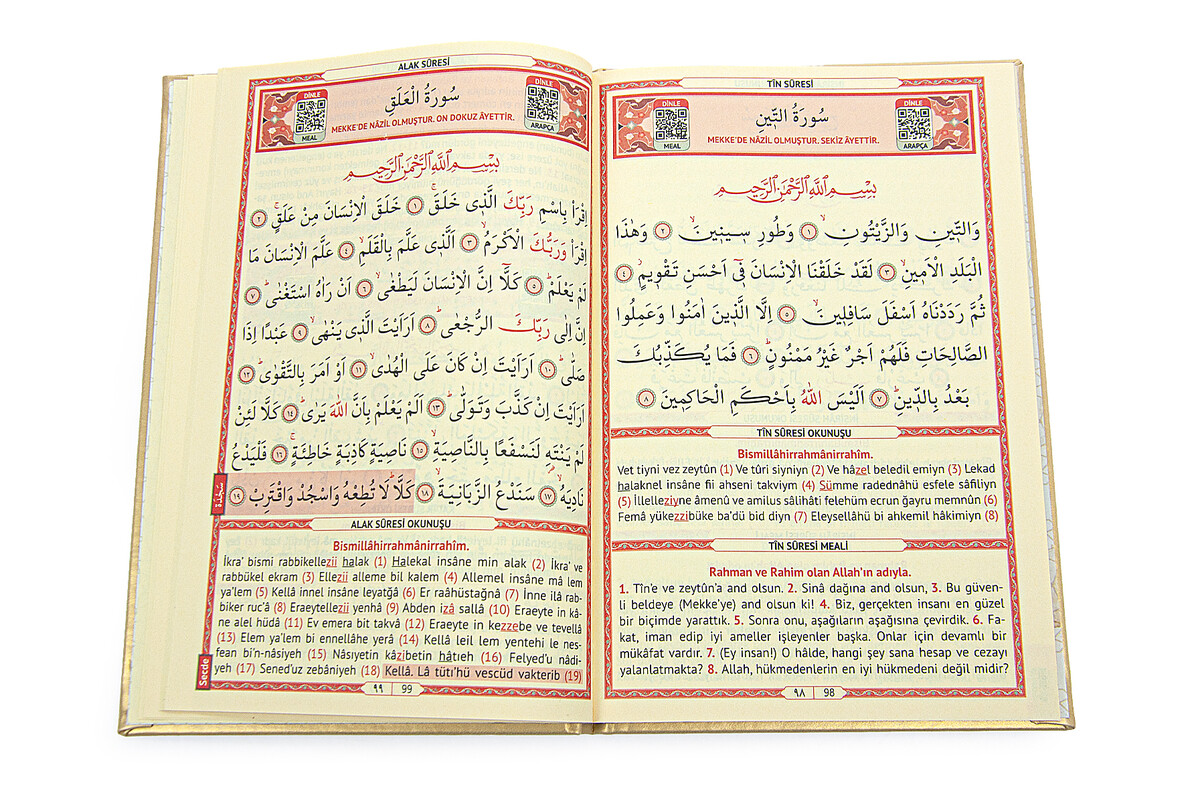 TÎN SÛRESİ
DİNLE
MEAL
سُورَةُ التّ۪ينِ
MEKKE'DE NÂZİL OLMUŞTUR. SEKİZ ÂYETTİR.
DİNLE
ARAPÇA
بِسْمِ اللّٰهِ الرَّحْمٰنِ الرَّح۪يمِ
وَالتّ۪ينِ وَالزَّيْتُونِۙ ﴿١﴾ وَطُورِ س۪ين۪ينَۙ ﴿٢﴾ وَهٰذَا
الْبَلَدِ الْاَم۪ينِۙ ﴿٣﴾ لَقَدْ خَلَقْنَا الْاِنْسَانَ ف۪ٓي اَحْسَنِ تَقْو۪يمٍۘ ﴿٤﴾
ثُمَّ رَدَدْنَاهُ اَسْفَلَ سَافِل۪ينَۙ ﴿٥﴾ اِلَّا الَّذ۪ينَ اٰمَنُوا وَعَمِلُوا
الصَّالِحَاتِ فَلَهُمْ اَجْرٌ غَيْرُ مَمْنُونٍۜ ﴿٦﴾ فَمَا يُكَذِّبُكَ
بَعْدُ بِالدّ۪ينِۜ ﴿٧﴾ اَلَيْسَ اللّٰهُ بِاَحْكَمِ الْحَاكِم۪ينَ ﴿٨﴾
TÎN SÛRESİ OKUNUŞU
Bismillâhirrahmânirrahîm.
Vet tiyni vez zeytûn (1) Ve tûri siyniyn (2) Ve hâzel beledil emiyn (3) Lekad
halaknel insâne fii ahseni takviym (4) Sümme radednâhü esfele sâfiliyn
(5) İllelleziyne âmenû ve amilus sâlihâti felehüm ecrun ğayru memnûn (6)
Femâ yükezzibüke ba'dü bid diyn (7) Eleysellâhü bi ahkemil hâkimiyn (8)
TÎN SÛRESİ MEALİ
Rahman ve Rahim olan Allah'ın adıyla.
1. Tîn'e ve zeytûn'a and olsun. 2. Sinâ dağına and olsun, 3. Bu güven-
li beldeye (Mekke'ye) and olsun ki! 4. Biz, gerçekten insanı en güzel
bir biçimde yarattık. 5. Sonra onu, aşağıların aşağısına çevirdik. 6. Fa-
kat, iman edip iyi ameller işleyenler başka. Onlar için devamlı bir
mükâfat vardır. 7. (Ey insan!) O hâlde, hangi şey sana hesap ve cezayı
yalanlatmakta? 8. Allah, hükmedenlerin en iyi hükmedeni değil midir?
٩٨ 98
ALAK SÛRESİ
DİNLE
MEAL
سُورَةُ الْعَلَقِ
MEKKE'DE NÂZİL OLMUŞTUR. ON DOKUZ ÂYETTİR.
DİNLE
ARAPÇA
بِسْمِ اللّٰهِ الرَّحْمٰنِ الرَّح۪يمِ
اِقْرَأْ بِاسْمِ رَبِّكَ الَّذ۪ي خَلَقَۚ ﴿١﴾ خَلَقَ الْاِنْسَانَ مِنْ عَلَقٍۚ ﴿٢﴾
اِقْرَأْ وَرَبُّكَ الْاَكْرَمُۙ ﴿٣﴾ اَلَّذ۪ي عَلَّمَ بِالْقَلَمِۙ ﴿٤﴾ عَلَّمَ الْاِنْسَانَ مَا
لَمْ يَعْلَمْۜ ﴿٥﴾ كَلَّٓا اِنَّ الْاِنْسَانَ لَيَطْغٰىۙ ﴿٦﴾ اَنْ رَاٰهُ اسْتَغْنٰىۜ ﴿٧﴾
اِنَّ اِلٰى رَبِّكَ الرُّجْعٰىۜ ﴿٨﴾ اَرَاَيْتَ الَّذ۪ي يَنْهٰىۙ ﴿٩﴾ عَبْدًا اِذَا
صَلّٰىۜ ﴿١٠﴾ اَرَاَيْتَ اِنْ كَانَ عَلَى الْهُدٰىۙ ﴿١١﴾ اَوْ اَمَرَ بِالتَّقْوٰىۜ ﴿١٢﴾
اَرَاَيْتَ اِنْ كَذَّبَ وَتَوَلّٰىۜ ﴿١٣﴾ اَلَمْ يَعْلَمْ بِاَنَّ اللّٰهَ يَرٰىۜ ﴿١٤﴾ كَلَّا لَئِنْ
لَمْ يَنْتَهِ۬ لَنَسْفَعًا بِالنَّاصِيَةِۙ ﴿١٥﴾ نَاصِيَةٍ كَاذِبَةٍ خَاطِئَةٍۚ ﴿١٦﴾ فَلْيَدْعُ
نَادِيَهُۙ ﴿١٧﴾ سَنَدْعُ الزَّبَانِيَةَۙ ﴿١٨﴾ كَلَّاۜ لَا تُطِعْهُ وَاسْجُدْ وَاقْتَرِبْ ﴿١٩﴾
سَجْدَة
ALAK SÛRESİ OKUNUŞU
Bismillâhirrahmânirrahîm.
İkra' bismi rabbikellezii halak (1) Halekal insâne min alak (2) İkra' ve
rabbükel ekram (3) Ellezii alleme bil kalem (4) Allemel insâne mâ lem
ya'lem (5) Kellâ innel insâne leyatğâ (6) Er raahüstağnâ (7) İnne ilâ rab-
biker ruc'â (8) Eraeytellezii yenhâ (9) Abden izâ sallâ (10) Eraeyte in kâ-
ne alel hüdâ (11) Ev emera bit takvâ (12) Eraeyte in kezzebe ve tevellâ
(13) Elem ya'lem bi ennellâhe yerâ (14) Kellâ leil lem yentehi le nes-
fean bi'n-nâsiyeh (15) Nâsıyetin kâzibetin hâtıeh (16) Felyed'u nâdi-
yeh (17) Sened'uz zebâniyeh (18) Kellâ. Lâ tütı'hü vescüd vakterib (19)
Secde
٩٩ 99